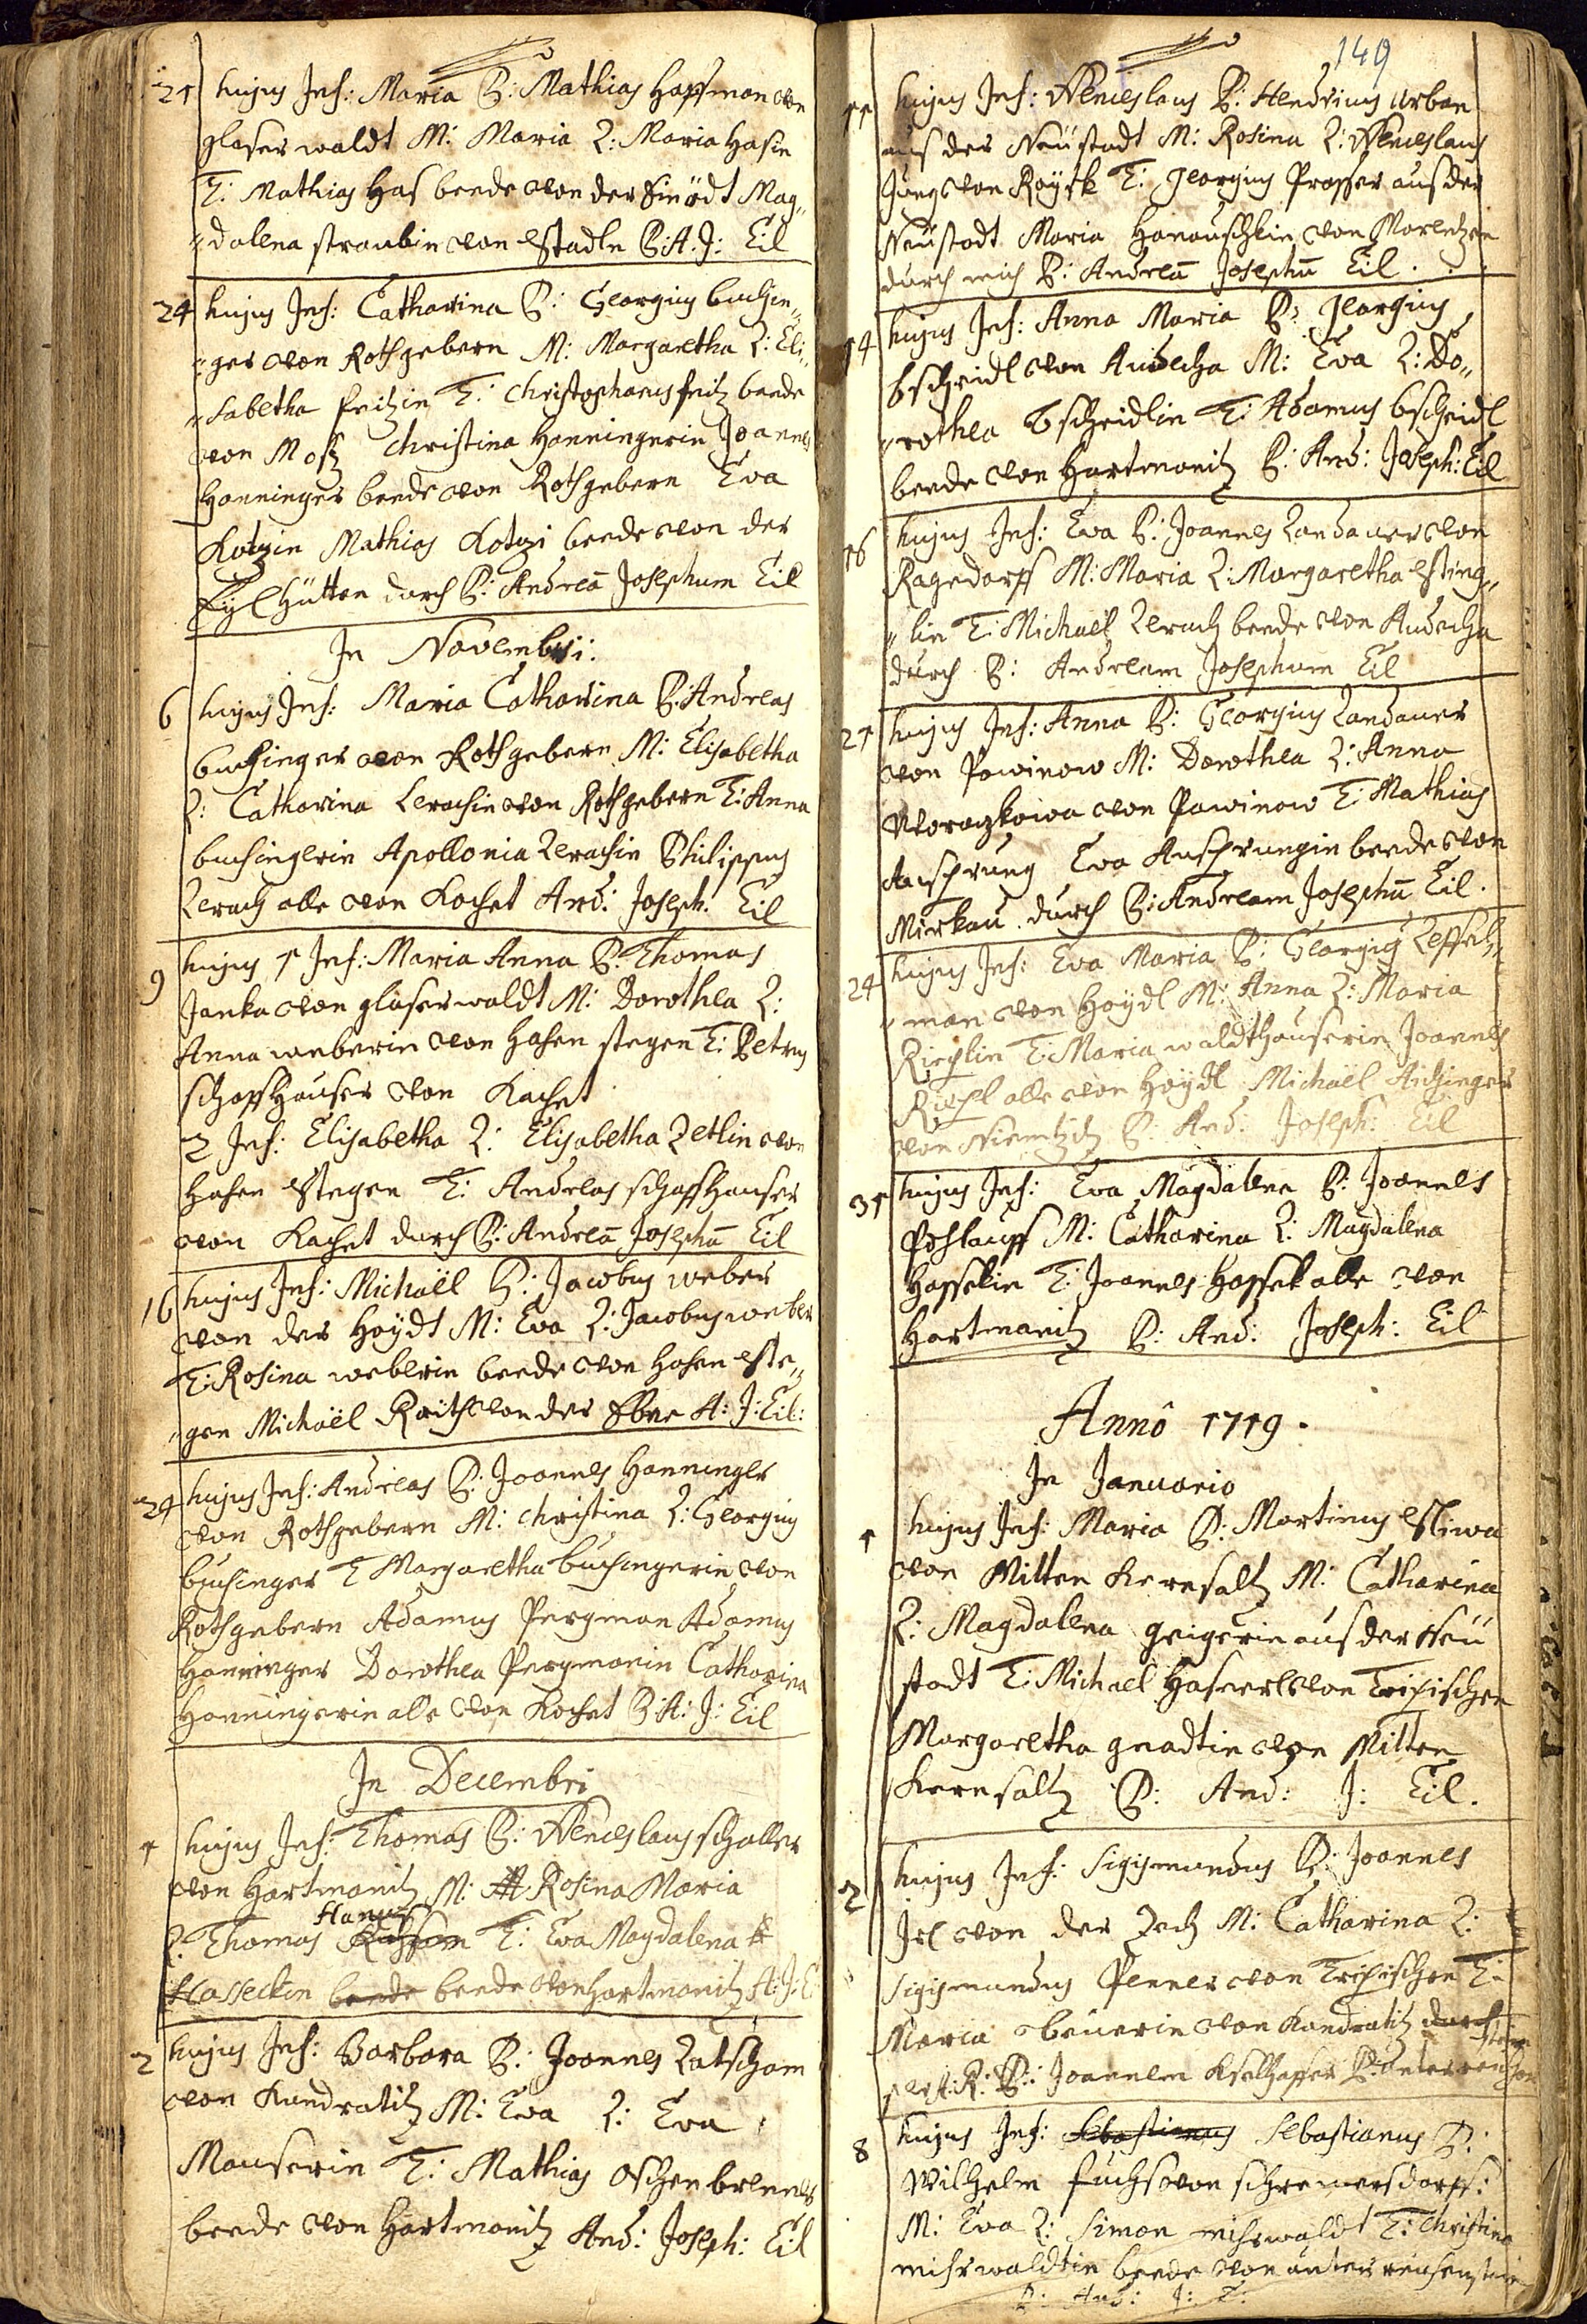 21 hujus Inf: Maria P: Mathias Hoffman von
glaserwaldt M: Maria L: Maria Hasin
T: Mathias Has beede von der Einödt Mag„
„dalena straubin von Stadln P: A: J: Eil
24 hujus Inf: Catharina P: Georgius buchin„
„ger von Rothgebern M: Margaretha L: Eli„
„sabetha fritzin T: Christophorus fritz beede
von Christina Hanningerin Joannes
Hanninger beede von Rothgebern Eva
Kotzin Mathias Kotzi beede von der
Hütten durch P: Andreā Josephum Eil
In Novembri:
6 hujus Inf: Maria Catharina P: Andreas
buchinger von Rothgebern M: Elisabetha
L: Catharina Lerachin von Rothgebern T: Anna
buchingerin Apollonia Lerachin Philippus
Lerach alle von Kochet And: Joseph: Eil
9 hujus 1 Inf: Maria Anna P: Thomas
Janka von glaserwaldt M: Dorothea L:
Anna weberin von Hohen stegen T: Petrus
schaffhauser von Kachet
2 Inf: Elisabetha L: Elisabetha Zetlin von
Hohen Stegen T: Andreas schaffhauser
von Kachet durch P: Andreā Josephū Eil
16 hujus Inf: Michaël P: Jacobus weber
von der Hoÿdt M: Eva L: Jacobus weber
T: Rosina weberin beede von Hohen Ste„
„gen Michaël Raith von der Ebne A: J: Eil:
24 hujus Inf: Andreas P: Joannes Hanninger
von Rothgebern M: Christina L: Georgius
buchinger T Margaretha buchingerin von
Rothgebern Adamus Pergman Adamus
Hanninger Dorothea Pergmanin Catharina
Hanningerin alle von Kochet P: A: J: Eil
In Decembri
1 hujus Inf: Thomas P: Wenceslaus schaller
von Hartmanitz M: Rosina Maria
Hanus
L: Thomas T: Eva Magdalena
Hasseckin beede beede von Hartmanitz A: J: E
2 hujus Inf: Barbara P: Joannes Latscham
von Kundratitz M: Eva L: Eva
Mauserin T: Mathias Oschenbrener
beede von Hartmanitz And: Joseph: Eil
149
11 hujus Inf: Wenceslaus P: Hendricus Urban
aus der Neüstadt M: Rosina L: Wenceslaus
Jung von T: Georgius Prosser aus der
Neüstadt Maria Hanauschkin von
durch mich P: Andreā Josephū Eil.
14 hujus Inf: Anna Maria P: Georgius
bscheidl von M: Eva L: Do„
„rothea bscheidlin T: Adamus bscheidl
beede von Hartmanitz P: And: Joseph: Eil
16 hujus Inf: Eva P: Joannes Landauer von
Ragedorff M: Maria L: Margaretha Sting„
„lin T: Michaël Lerach beede von
durch P: Andream Josephum Eil
21 hujus Inf: Anna P: Georgius Landauer
von Pawinow M: Dorothea L: Anna
von Pawinow T: Mathias
Ansprung Eva Ansprungin beede von
Mirkau durch P: Andream Josephū Eil.
24 hujus Inf: Eva Maria P: Georgius Leffel„
„man von Hoÿdl M: Anna L: Maria
Riechlin T: Maria waldthauserin Joannes
Riechl alle von Hoÿdl Michaël Aichinger
von P: And: Joseph: Eil
31 hujus Inf: Eva Magdalena P: Joannes
M: Catharina L: Magdalena
Hassekin T: Joannes Hassek alle von
Hartmanitz P: And: Joseph: Eil
Annô 1719.
In Januario
1 hujus Inf: Maria P: Martinus Sliwa
von Mitten Kernsaltz M: Catharina
L: Magdalena geigerin aus der Neü
stadt T: Michael Hasnerl von Tripischen
Margaretha gnadtin von Mitten
Kernsaltz P: And: J: Eil.
2 hujus Inf: Sigismundus P: Joannes
von der Zech M: Catharina L:
Sigismundus Penner von Tripischen T:
Maria von Kundratitz durch
A: R: P: Joannem
8 hujus Inf: Sebastianus Sebastianus P:
Wilhelm fuchs von
M: Eva L: Simon T: Christina
beede von unter reichenstein
P: And: J: E: